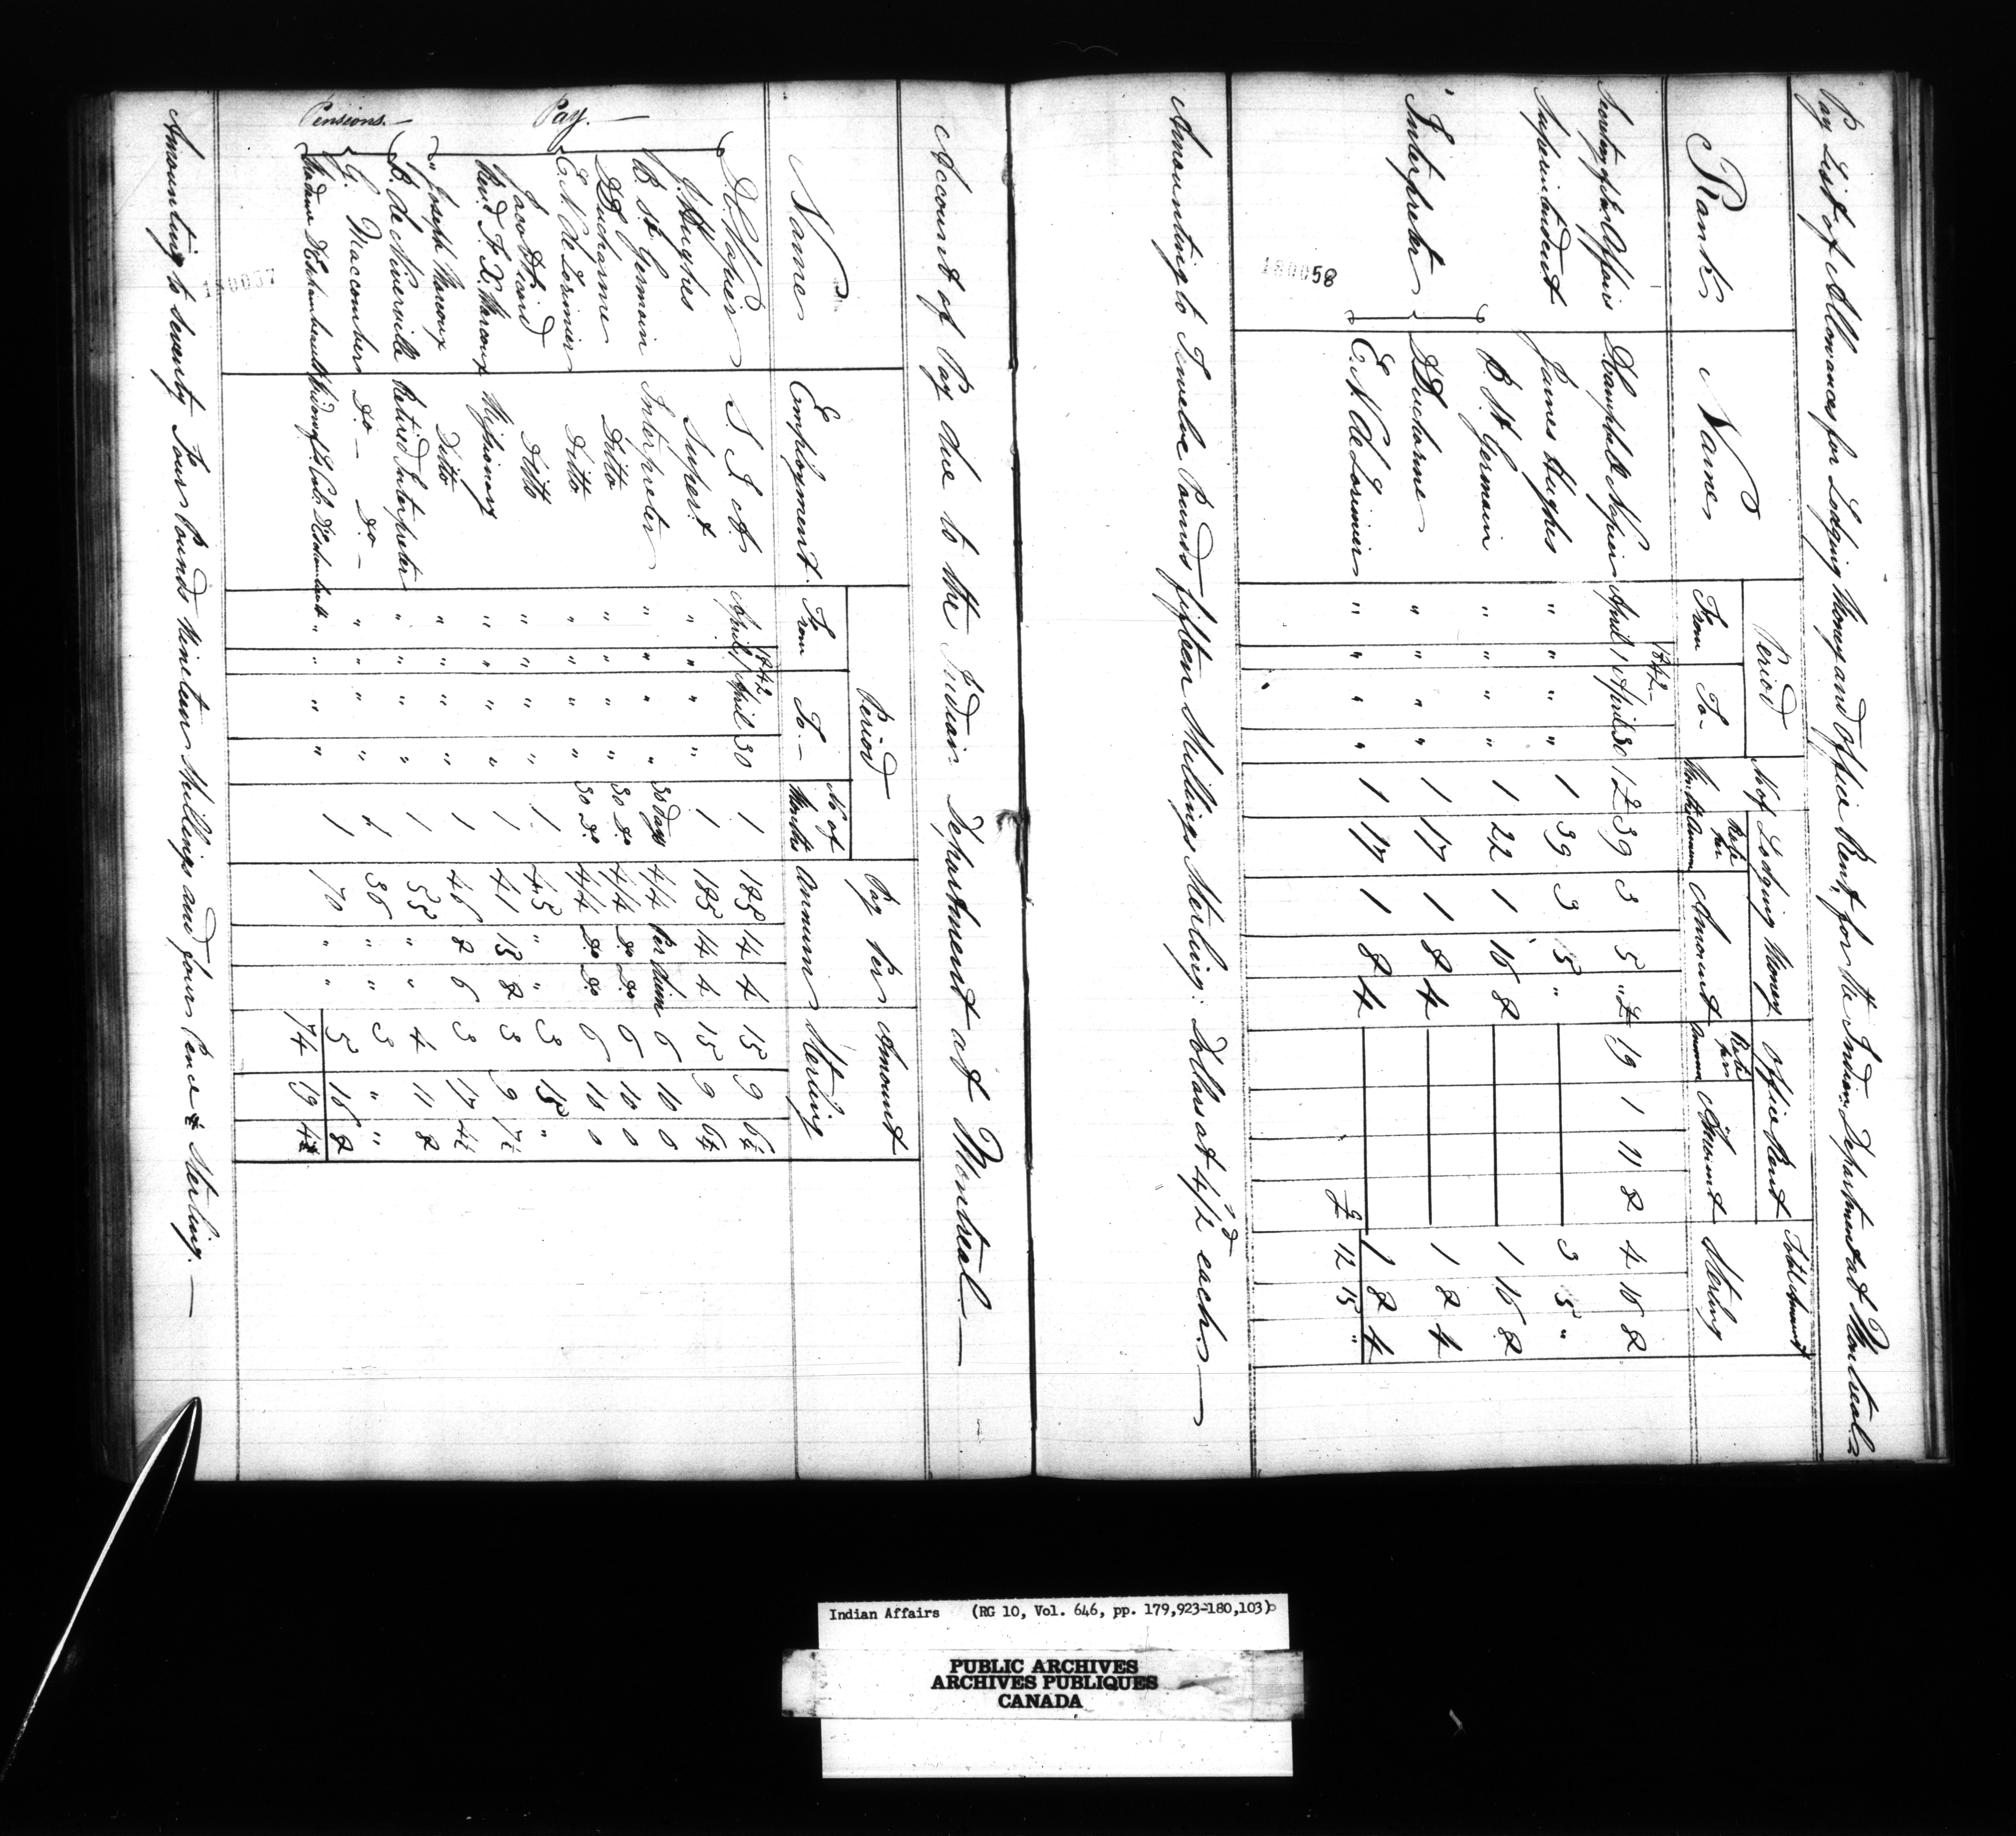 Account of Pay due to the Indian Department at Montreal.—
Name Employment Period Pay Per Annum Amount Sterling
From To— No of Months
1842
Pay.—
D. C. Napier S. I. A. April 1 April 30 1 185 14 4 15 9 6½
J. Hughes Supert " " " " 1 185 14 4 15 9 6½
B. St. Germain Interpreter " " " " 30 Days 4/4 Per Diem 6 10 0
D. Ducharme Ditto " " " " 30 Do 4/4 Do Do 6 10 0
E. N. de Lorimier Ditto " " " " 30 Do 4/4 Do Do 6 10 0
Ditto " " " " 1 45 " " 3 15 "
Revd. F. X. Marcoux Missionary " " " " 1 41 15 8 3 9 7½
" Joseph Marcoux Ditto " " " " 1 46 8 6 3 17 4½
Pensions.—
B. de Niverville Retired Interpreter " " " " 1 55 " " 4 11 8
G. Maccomber Do— Do— " " " " 1 36 " " 3 " "
Madme Deschambeault Widow of Lt. Col. Deschambeault " " " " 1 70 " " 5 16 8
74 19 4½
Amounting to Seventy Four Pounds Nineteen Shillings and four Pence ½ Sterling.—
180057
Pay List of Allowances for Lodging Money and Office Rent, for the Indian Department at Montreal
Rank Name Period No of Months Lodging Money Office Rent Total Amount Sterling
From To— Rate per Annum Amount Rate per Annum Amount
1842
Secretary of Indn Affairs D. Campbell Napier April 1 April 30 1 £ 39 3 5 " £ 19 1 11 8 4 16 8
Superintendent James Hughes " " " " 1 39 3 5 " 3 5 "
Interpreter B. St. Germain " " " " 1 22 1 16 8 1 16 8
D. Ducharme " " " " 1 17 1 8 4 1 8 4
E. N. de Lorimier " " " " 1 17 1 8 4 1 8 4
£ 12 15 "
180058
Amounting to Twelve Pounds fifteen Shillings Sterling: Dollars at 4/2d each.—
Indian Affairs (RG 10, Vol. 646, pp. 179,923-180,103)
PUBLIC ARCHIVES
ARCHIVES PUBLIQUES
CANADA